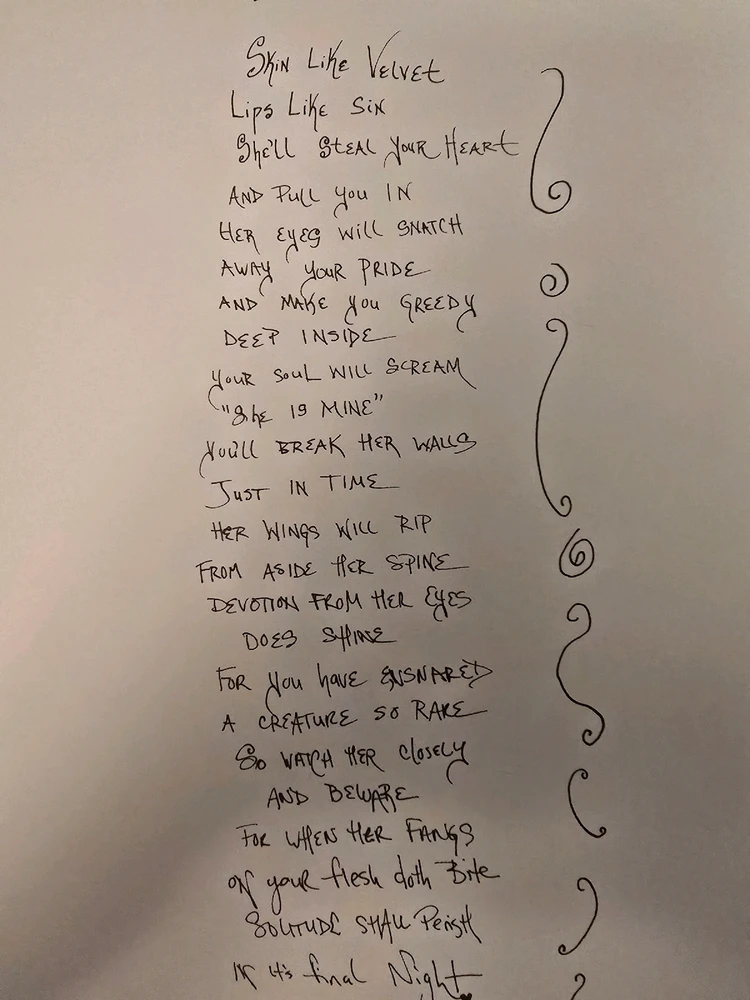 Skin Like Velvet
Lips Like Sin
She'll Steal your Heart
AND Pull you IN
HER EYES Will SNATCH
AWAY YOUR PRIDE
AND MAKE you GREEDY
DEEP INSIDE
YOUR SOUL WILL SCREAM
"She IS MINE"
You'll BREAK HER WALLS
JUST IN TIME
HER WINGS WILL RIP
FROM ASIDE HER SPINE
DEVOTION FROM HER EYES
DOES SHINE
FOR you have ENSNARED
A CREATURE SO RARE
So WATCH HER Closely
AND BEWARE
FOR WHEN HER FANGS
ON your flesh doth Bite
SOLITUDE SHALL Perish
IN it's final Night